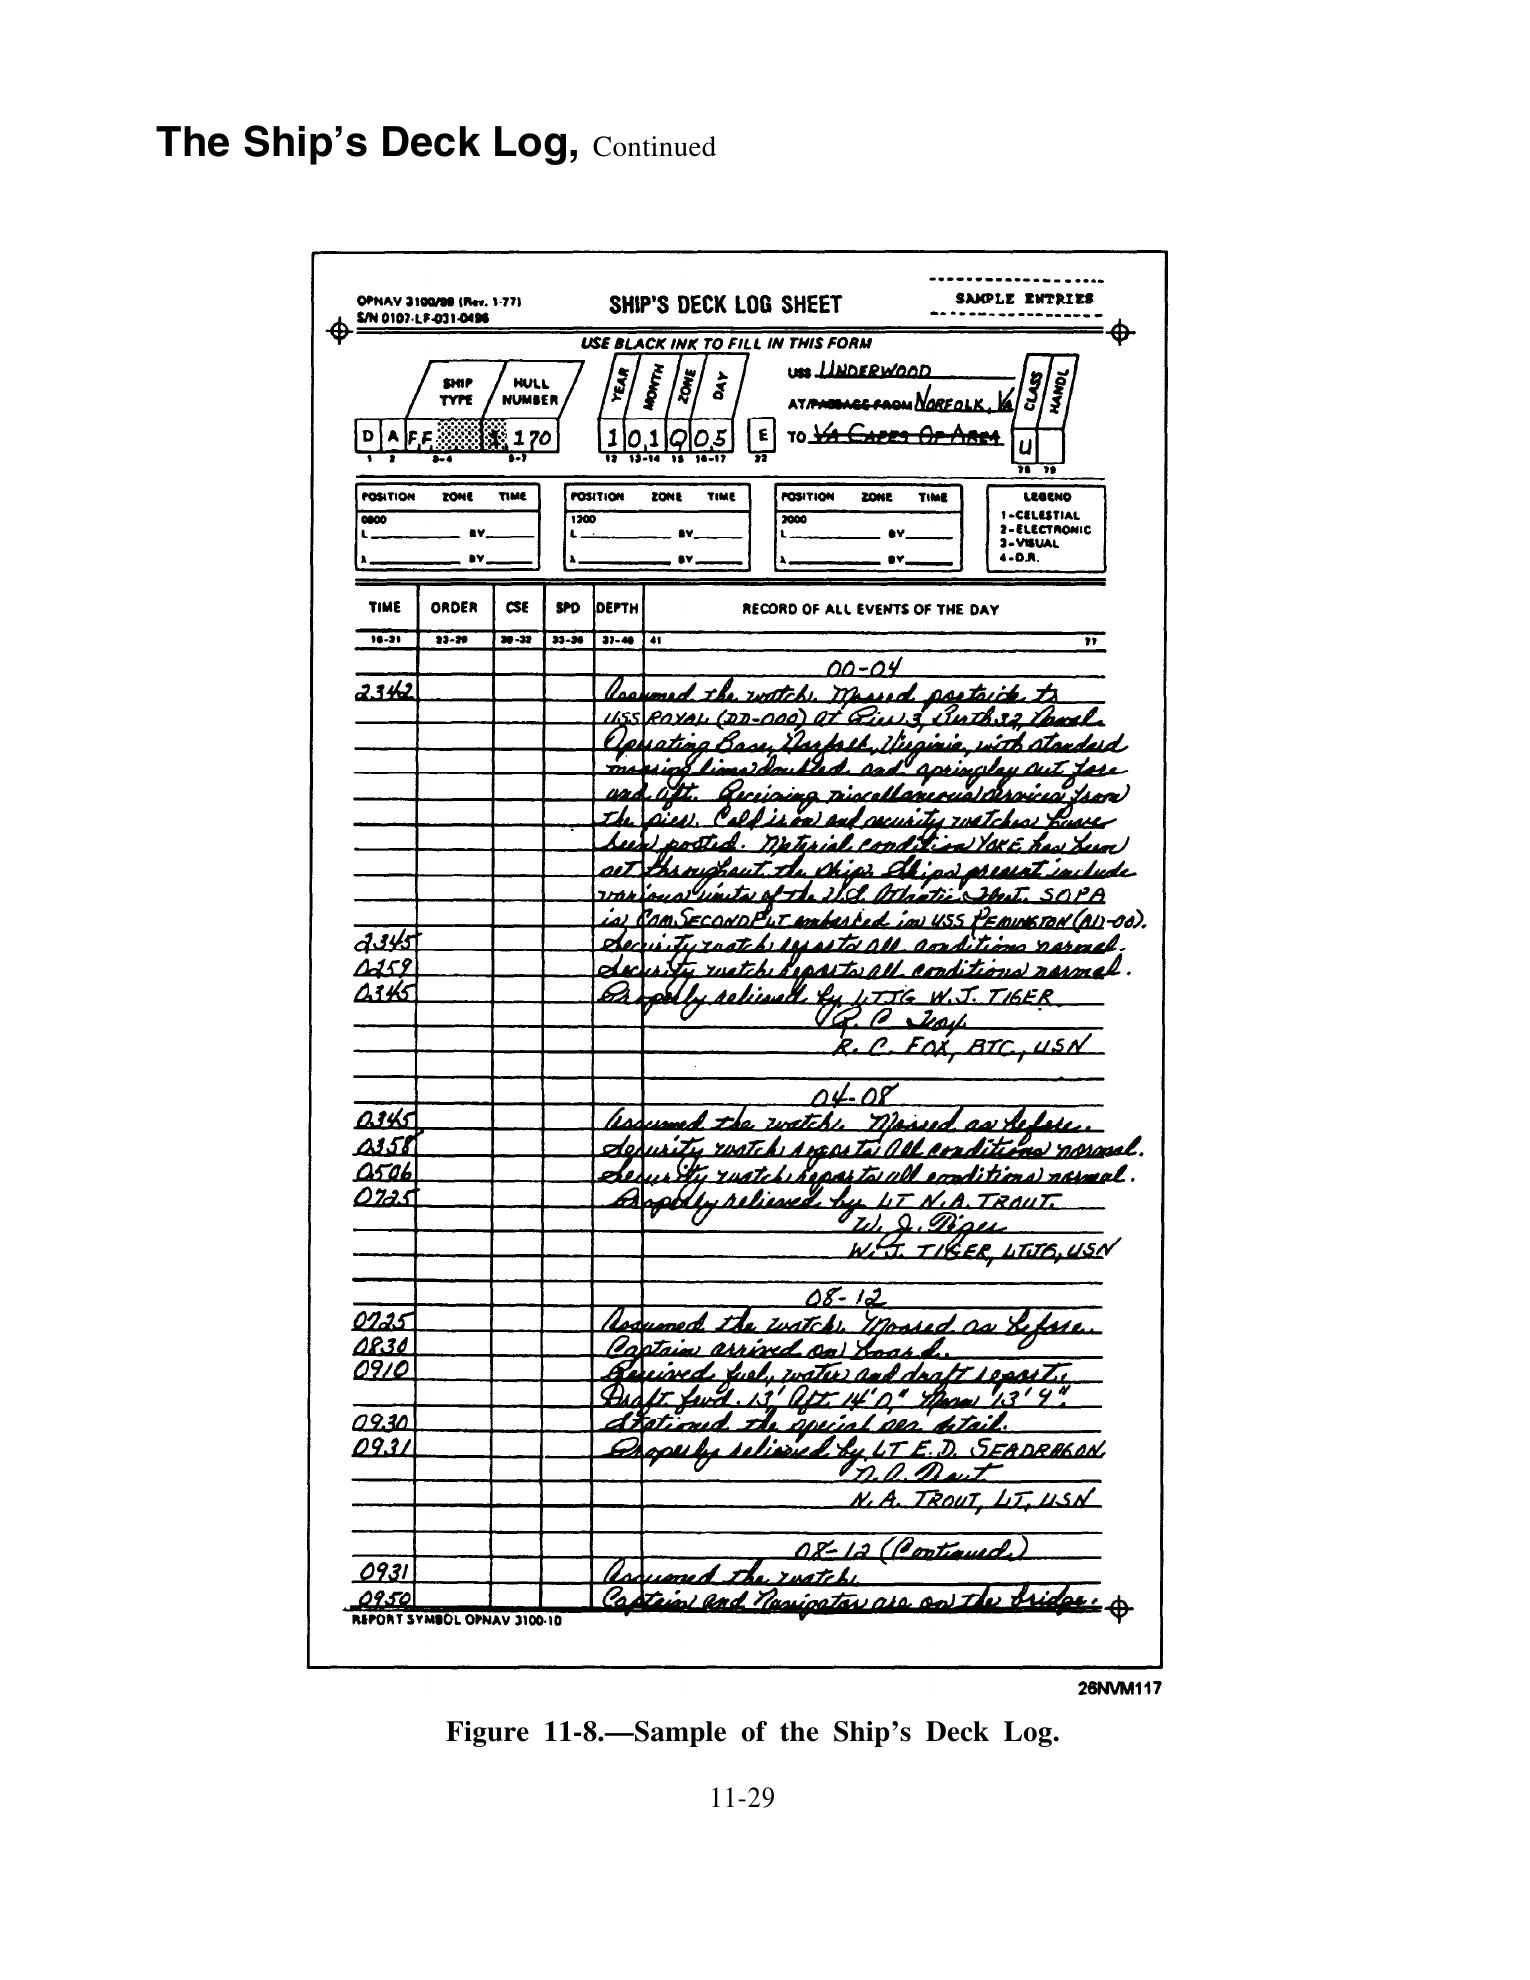 The Ship's Deck Log, Continued
OPNAV 3100/99 (Rev. 1-77)
S/N 0107-LF-031-0496
SHIP'S DECK LOG SHEET
SAMPLE ENTRIES
USE BLACK INK TO FILL IN THIS FORM
SHIP TYPE HULL NUMBER YEAR MONTH ZONE DAY
USS UNDERWOOD
AT/PASSAGE FROM NORFOLK, VA
TO VA CAPES OP AREA
CLASS HANDL
D A FF 1,170 1 0,1 Q 0,5 E U
1 2 3-4 5-7 12 13-14 15 16-17 22 78 79
POSITION ZONE TIME POSITION ZONE TIME POSITION ZONE TIME LEGEND
0800 1200 2000 1-CELESTIAL
L BY L BY L BY 2-ELECTRONIC
3-VISUAL
λ BY λ BY λ BY 4-D.R.
TIME ORDER CSE SPD DEPTH RECORD OF ALL EVENTS OF THE DAY
18-21 23-29 30-32 33-36 37-40 41 77
00-04
2342 Assumed the watch. Moored portside to
USS ROYAL (DD-000) at Pier 3, Berth 32, Naval
Operating Base, Norfolk, Virginia, with standard
mooring lines doubled and springlay out fore
and aft. Receiving miscellaneous services from
the pier. Cold iron and security watches have
been posted. Material condition YOKE has been
set throughout the ship. Ships present include
various units of the U.S. Atlantic Fleet. SOPA
is COMSECONDFLT embarked in USS REMINGTON (AD-00).
2345 Security watch reports all conditions normal.
0259 Security watch reports all conditions normal.
0345 Properly relieved by LTJG W.J. TIGER
R. C. Fox
R. C. FOX, BTC, USN
04-08
0345 Assumed the watch. Moored as before.
0358 Security watch reports all conditions normal.
0506 Security watch reports all conditions normal.
0725 Properly relieved by LT N.A. TROUT.
W. J. Tiger
W. J. TIGER, LTJG, USN
08-12
0725 Assumed the watch. Moored as before.
0830 Captain arrived on board.
0910 Received fuel, water and draft report.
Draft fwd. 13', Aft. 14' 0", Mean 13' 9".
0930 Stationed the special sea detail.
0931 Properly relieved by LT E. D. SEADRAGON
N. A. Trout
N. A. TROUT, LT, USN
08-12 (Continued)
0931 Assumed the watch.
0950 Captain and Navigator are on the bridge.
REPORT SYMBOL OPNAV 3100-10
26NVM117
Figure 11-8.—Sample of the Ship's Deck Log.
11-29